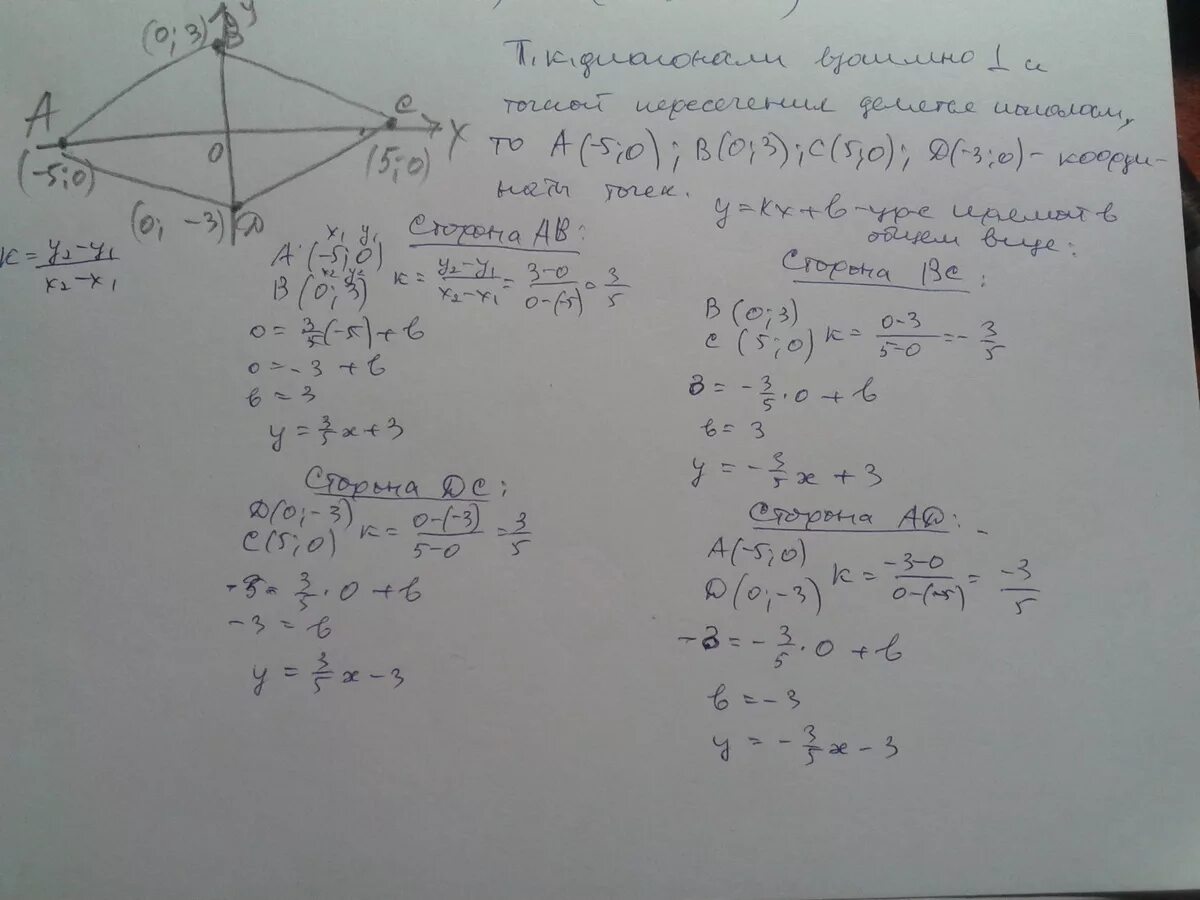 y
(0; 3) B
A
C
x
O
(-5; 0)
(5; 0)
(0; -3) D
Т.к. диагонали взаимно ⊥ и
точкой пересечения делятся пополам,
то A(-5; 0); B(0; 3); C(5; 0); D(-3; 0) - коорди-
наты точек.
y = kx + b - ур-е прямой в
общем виде:
k = (y₂ - y₁)/(x₂ - x₁)
Сторона AB:
x₁ y₁
A (-5; 0)
x₂ y₂
B (0; 3)
k = (y₂ - y₁)/(x₂ - x₁) = (3 - 0)/(0 - (-5)) = 3/5
0 = 3/5 (-5) + b
0 = -3 + b
b = 3
y = 3/5 x + 3
Сторона BC:
B (0; 3)
C (5; 0) k = (0 - 3)/(5 - 0) = - 3/5
3 = - 3/5 · 0 + b
b = 3
y = - 3/5 x + 3
Сторона DC:
D(0; -3)
C(5; 0) k = (0 - (-3))/(5 - 0) = 3/5
-3 = 3/5 · 0 + b
-3 = b
y = 3/5 x - 3
Сторона AD:
A(-5; 0)
D(0; -3) k = (-3 - 0)/(0 - (-5)) = -3/5
-3 = - 3/5 · 0 + b
b = -3
y = - 3/5 x - 3